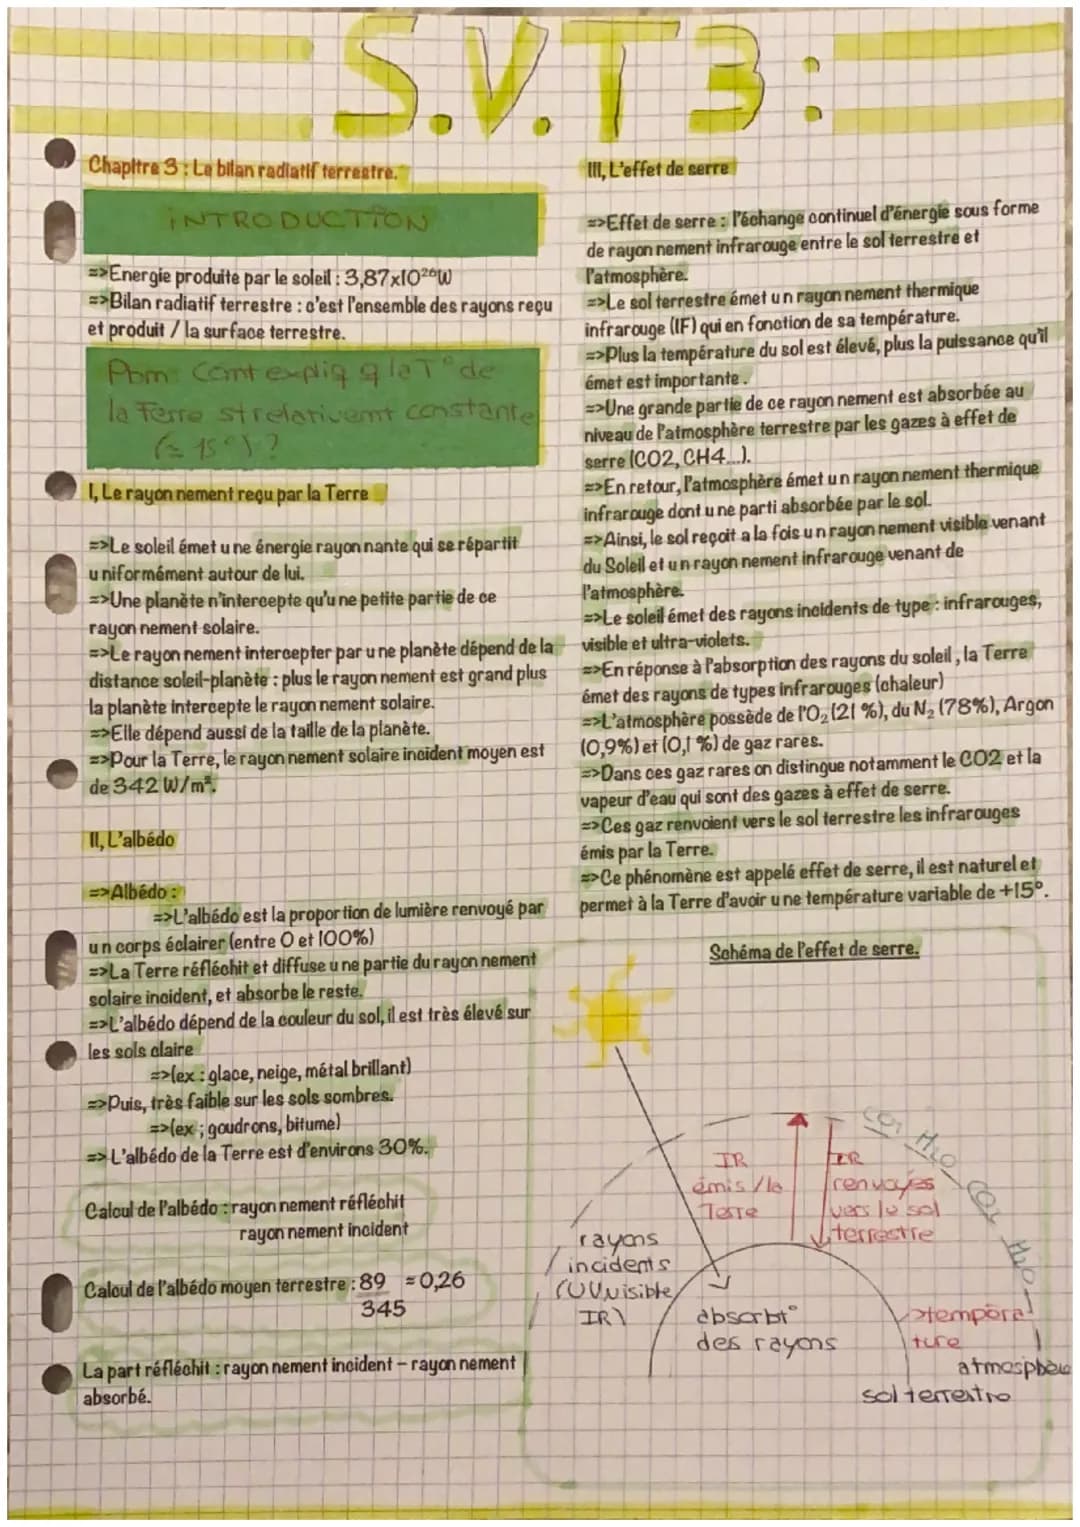 S.V.T 3 :
Chapitre 3 : Le bilan radiatif terrestre.
INTRODUCTION
=>Energie produite par le soleil : 3,87x10²⁶W
=>Bilan radiatif terrestre : c'est l'ensemble des rayons reçu
et produit / la surface terrestre.
Pbm : Comt expliq q la T° de
la Terre st relativemt constante
(≃ 15°) ?
I, Le rayonnement reçu par la Terre
=>Le soleil émet une énergie rayonnante qui se répartit
uniformément autour de lui.
=>Une planète n'intercepte qu'une petite partie de ce
rayonnement solaire.
=>Le rayonnement intercepter par une planète dépend de la
distance soleil-planète : plus le rayonnement est grand plus
la planète intercepte le rayonnement solaire.
=>Elle dépend aussi de la taille de la planète.
=>Pour la Terre, le rayonnement solaire incident moyen est
de 342 W/m².
II, L'albédo
=>Albédo :
=>L'albédo est la proportion de lumière renvoyé par
un corps éclairer (entre 0 et 100%)
=>La Terre réfléchit et diffuse une partie du rayonnement
solaire incident, et absorbe le reste.
=>L'albédo dépend de la couleur du sol, il est très élevé sur
les sols claire
=>(ex : glace, neige, métal brillant)
=>Puis, très faible sur les sols sombres.
=>(ex ; goudrons, bitume)
=> L'albédo de la Terre est d'environs 30%.
Calcul de l'albédo : rayonnement réfléchit
rayonnement incident
Calcul de l'albédo moyen terrestre : 89 = 0,26
345
La part réfléchit : rayonnement incident – rayonnement
absorbé.
III, L'effet de serre
=>Effet de serre : l'échange continuel d'énergie sous forme
de rayonnement infrarouge entre le sol terrestre et
l'atmosphère.
=>Le sol terrestre émet un rayonnement thermique
infrarouge (IF) qui en fonction de sa température.
=>Plus la température du sol est élevé, plus la puissance qu'il
émet est importante.
=>Une grande partie de ce rayonnement est absorbée au
niveau de l'atmosphère terrestre par les gazes à effet de
serre (CO2, CH4...).
=>En retour, l'atmosphère émet un rayonnement thermique
infrarouge dont une parti absorbée par le sol.
=>Ainsi, le sol reçoit a la fois un rayonnement visible venant
du Soleil et un rayonnement infrarouge venant de
l'atmosphère.
=>Le soleil émet des rayons incidents de type : infrarouges,
visible et ultra-violets.
=>En réponse à l'absorption des rayons du soleil, la Terre
émet des rayons de types infrarouges (chaleur)
=>L'atmosphère possède de l'O₂ (21 %), du N₂ (78%), Argon
(0,9%) et (0,1 %) de gaz rares.
=>Dans ces gaz rares on distingue notamment le CO2 et la
vapeur d'eau qui sont des gazes à effet de serre.
=>Ces gaz renvoient vers le sol terrestre les infrarouges
émis par la Terre.
=>Ce phénomène est appelé effet de serre, il est naturel et
permet à la Terre d'avoir une température variable de +15°.
Schéma de l'effet de serre.
CO₂ H₂O CO₂ H₂O
IR
émis / la
Terre
IR
renvoyés
vers le sol
terrestre
rayons
incidents
(UV,visible,
IR)
absorbt°
des rayons
tempéra
ture
atmosphère
sol terrestre